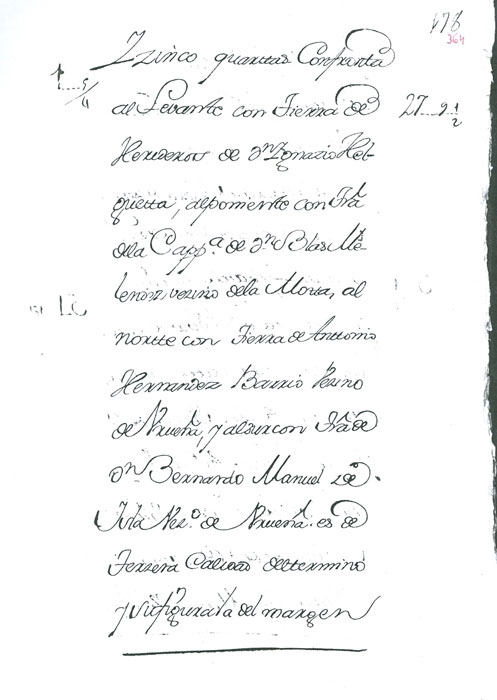 178
364
Zzinco quartas Confronta
1....5/4
al Levante con Tierra de
27...9 1/2
Herederos de Dn Ygnazio Hel-
guetta, alponiente con Tra
dela Capp.a de Dn Blas Me-
lendz, vezino dela Mota, al
norte con Tierra de Anttonio
Hernandez Barrio Vezino
de Vrueña, y alsur con Tra de
Dn Bernardo Manuel de
Vez.o de Vrueña. es de
Terzera Calidad deltermino
y su figura la del margen